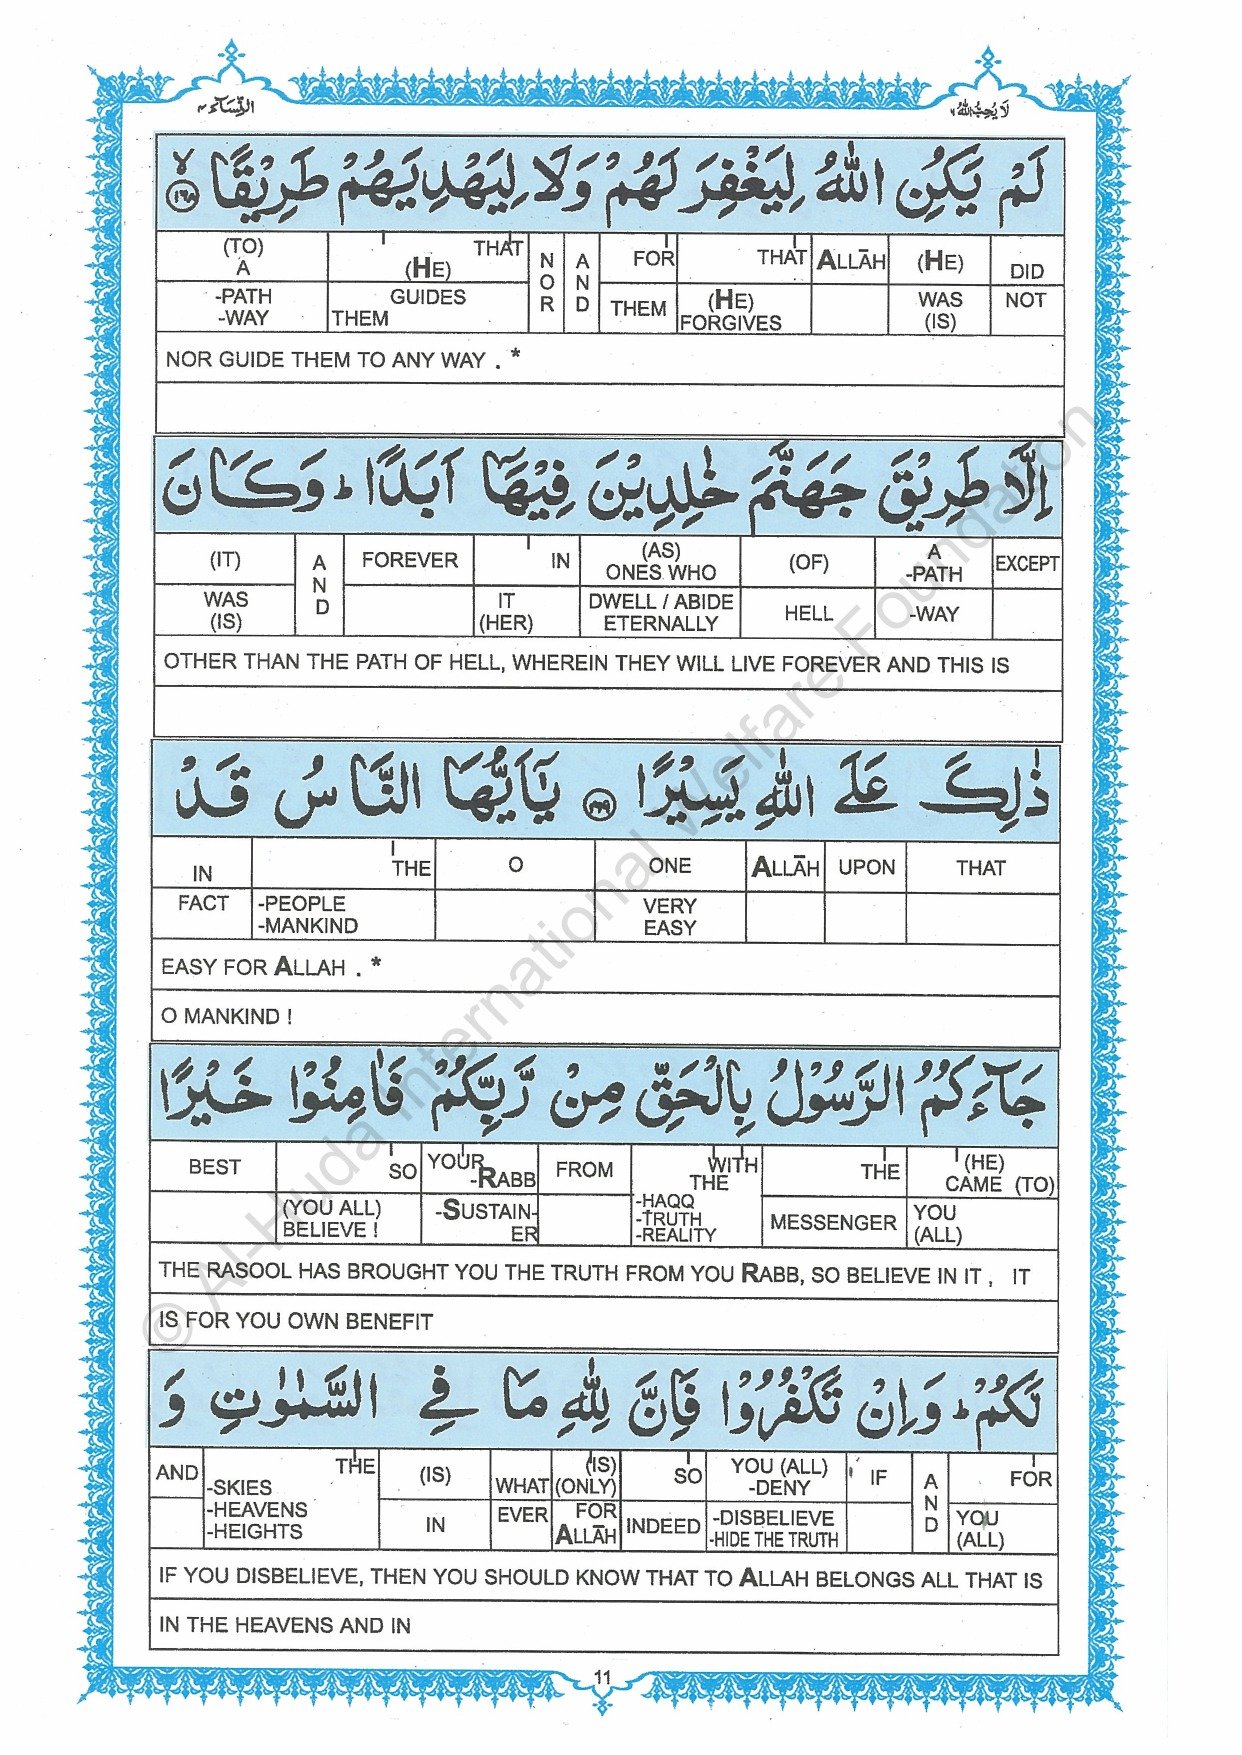 النِّسَآء ٤
لَا يُحِبُّ اللّٰهُ ٦
لَمْ يَكُنِ اللّٰهُ لِيَغْفِرَ لَهُمْ وَلَا لِيَهْدِيَهُمْ طَرِيْقًا ۙ ١٦٨
(TO) A THAT (HE) NOR AND FOR THAT ALLĀH (HE) DID
-PATH -WAY GUIDES THEM THEM (HE) FORGIVES WAS (IS) NOT
NOR GUIDE THEM TO ANY WAY . *
اِلَّا طَرِيْقَ جَهَنَّمَ خٰلِدِيْنَ فِيْهَآ اَبَدًا ؕ وَكَانَ
(IT) AND FOREVER IN (AS) ONES WHO (OF) A -PATH EXCEPT
WAS (IS) IT (HER) DWELL / ABIDE ETERNALLY HELL -WAY
OTHER THAN THE PATH OF HELL, WHEREIN THEY WILL LIVE FOREVER AND THIS IS
ذٰلِكَ عَلَى اللّٰهِ يَسِيْرًا ١٦٩ يٰٓاَيُّهَا النَّاسُ قَدْ
IN THE O ONE ALLĀH UPON THAT
FACT -PEOPLE -MANKIND VERY EASY
EASY FOR ALLAH . *
O MANKIND !
جَآءَكُمُ الرَّسُوْلُ بِالْحَقِّ مِنْ رَّبِّكُمْ فَاٰمِنُوْا خَيْرًا
BEST SO YOUR -RABB FROM WITH THE THE (HE) CAME (TO)
(YOU ALL) BELIEVE ! -SUSTAIN-ER -HAQQ -TRUTH -REALITY MESSENGER YOU (ALL)
THE RASOOL HAS BROUGHT YOU THE TRUTH FROM YOU RABB, SO BELIEVE IN IT , IT
IS FOR YOU OWN BENEFIT
لَّكُمْ ؕ وَاِنْ تَكْفُرُوْا فَاِنَّ لِلّٰهِ مَا فِي السَّمٰوٰتِ وَ
AND THE (IS) WHAT (IS) (ONLY) SO YOU (ALL) -DENY IF AND FOR
-SKIES -HEAVENS -HEIGHTS IN EVER FOR ALLĀH INDEED -DISBELIEVE -HIDE THE TRUTH YOU (ALL)
IF YOU DISBELIEVE, THEN YOU SHOULD KNOW THAT TO ALLAH BELONGS ALL THAT IS
IN THE HEAVENS AND IN
11
© Al-Huda International Welfare Foundation